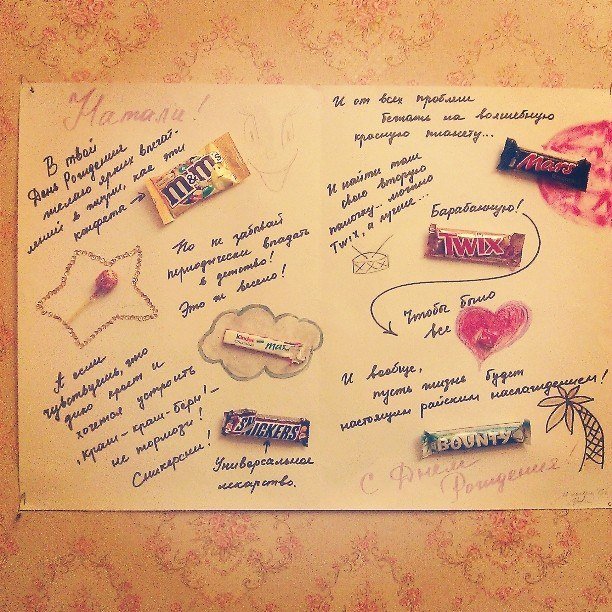 Натали!
В твой
День Рождения
желаю ярких впечат-
лений в жизни, как эти
конфета →
m&m's
Но не забывай
периодически впадать
в детство!
Это ж весело!
Kinder
maxi
А если
чувствуешь, что
дико прет и
хочется устроить
"Краш-краш-бери!" –
не тормози!
Сникерсни!
SNICKERS
Универсальное
лекарство.
И от всех проблем
бежать на волшебную
красную планету...
Mars
И найти там
свою вторую
палочку... можно
Twix, а лучше...
Барабанную!
TWIX
Чтобы было
все
И вообще,
пусть жизнь будет
настоящим райским наслаждением!
BOUNTY
С Днем
Рождения!